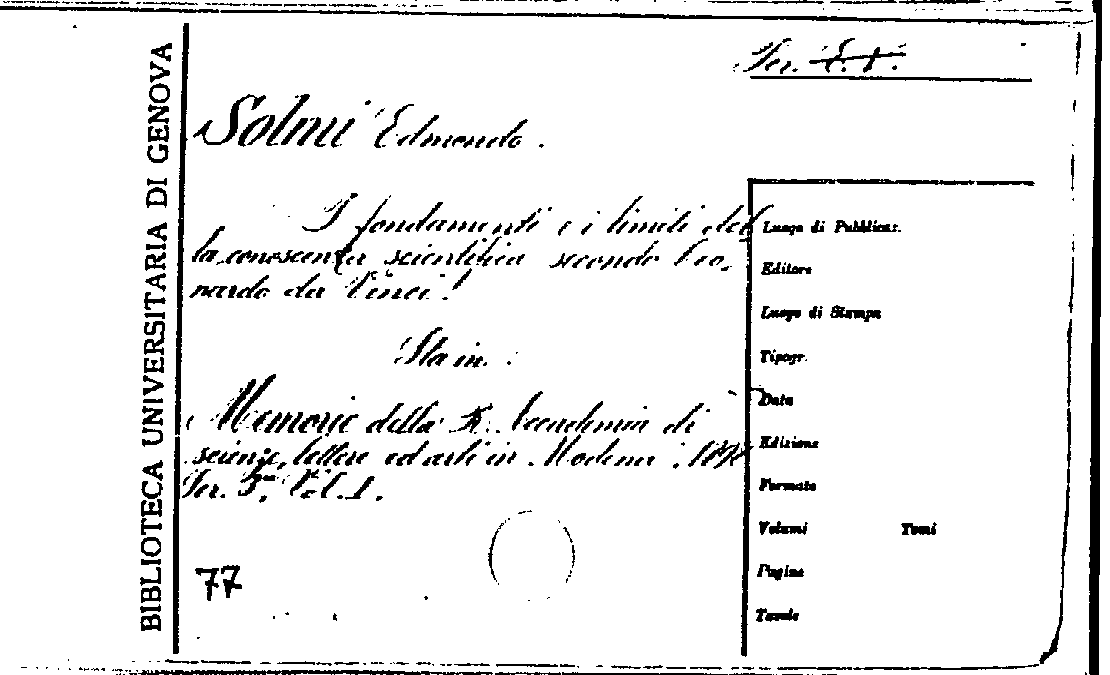 BIBLIOTECA UNIVERSITARIA DI GENOVA
Ser. E. V.
Solmi Edmondo.
I fondamenti e i limiti del
la conoscenza scientifica secondo Leo-
nardo da Vinci.
Sta in:
Memorie della R. Accademia di
scienze, lettere ed arti in Modena.
Ser. 3ª, Vol. 1.
77
Luogo di Pubblicaz.
Editore
Luogo di Stampa
Tipogr.
Data
Edizione
Formato
Volumi Tomi
Pagine
Tavole